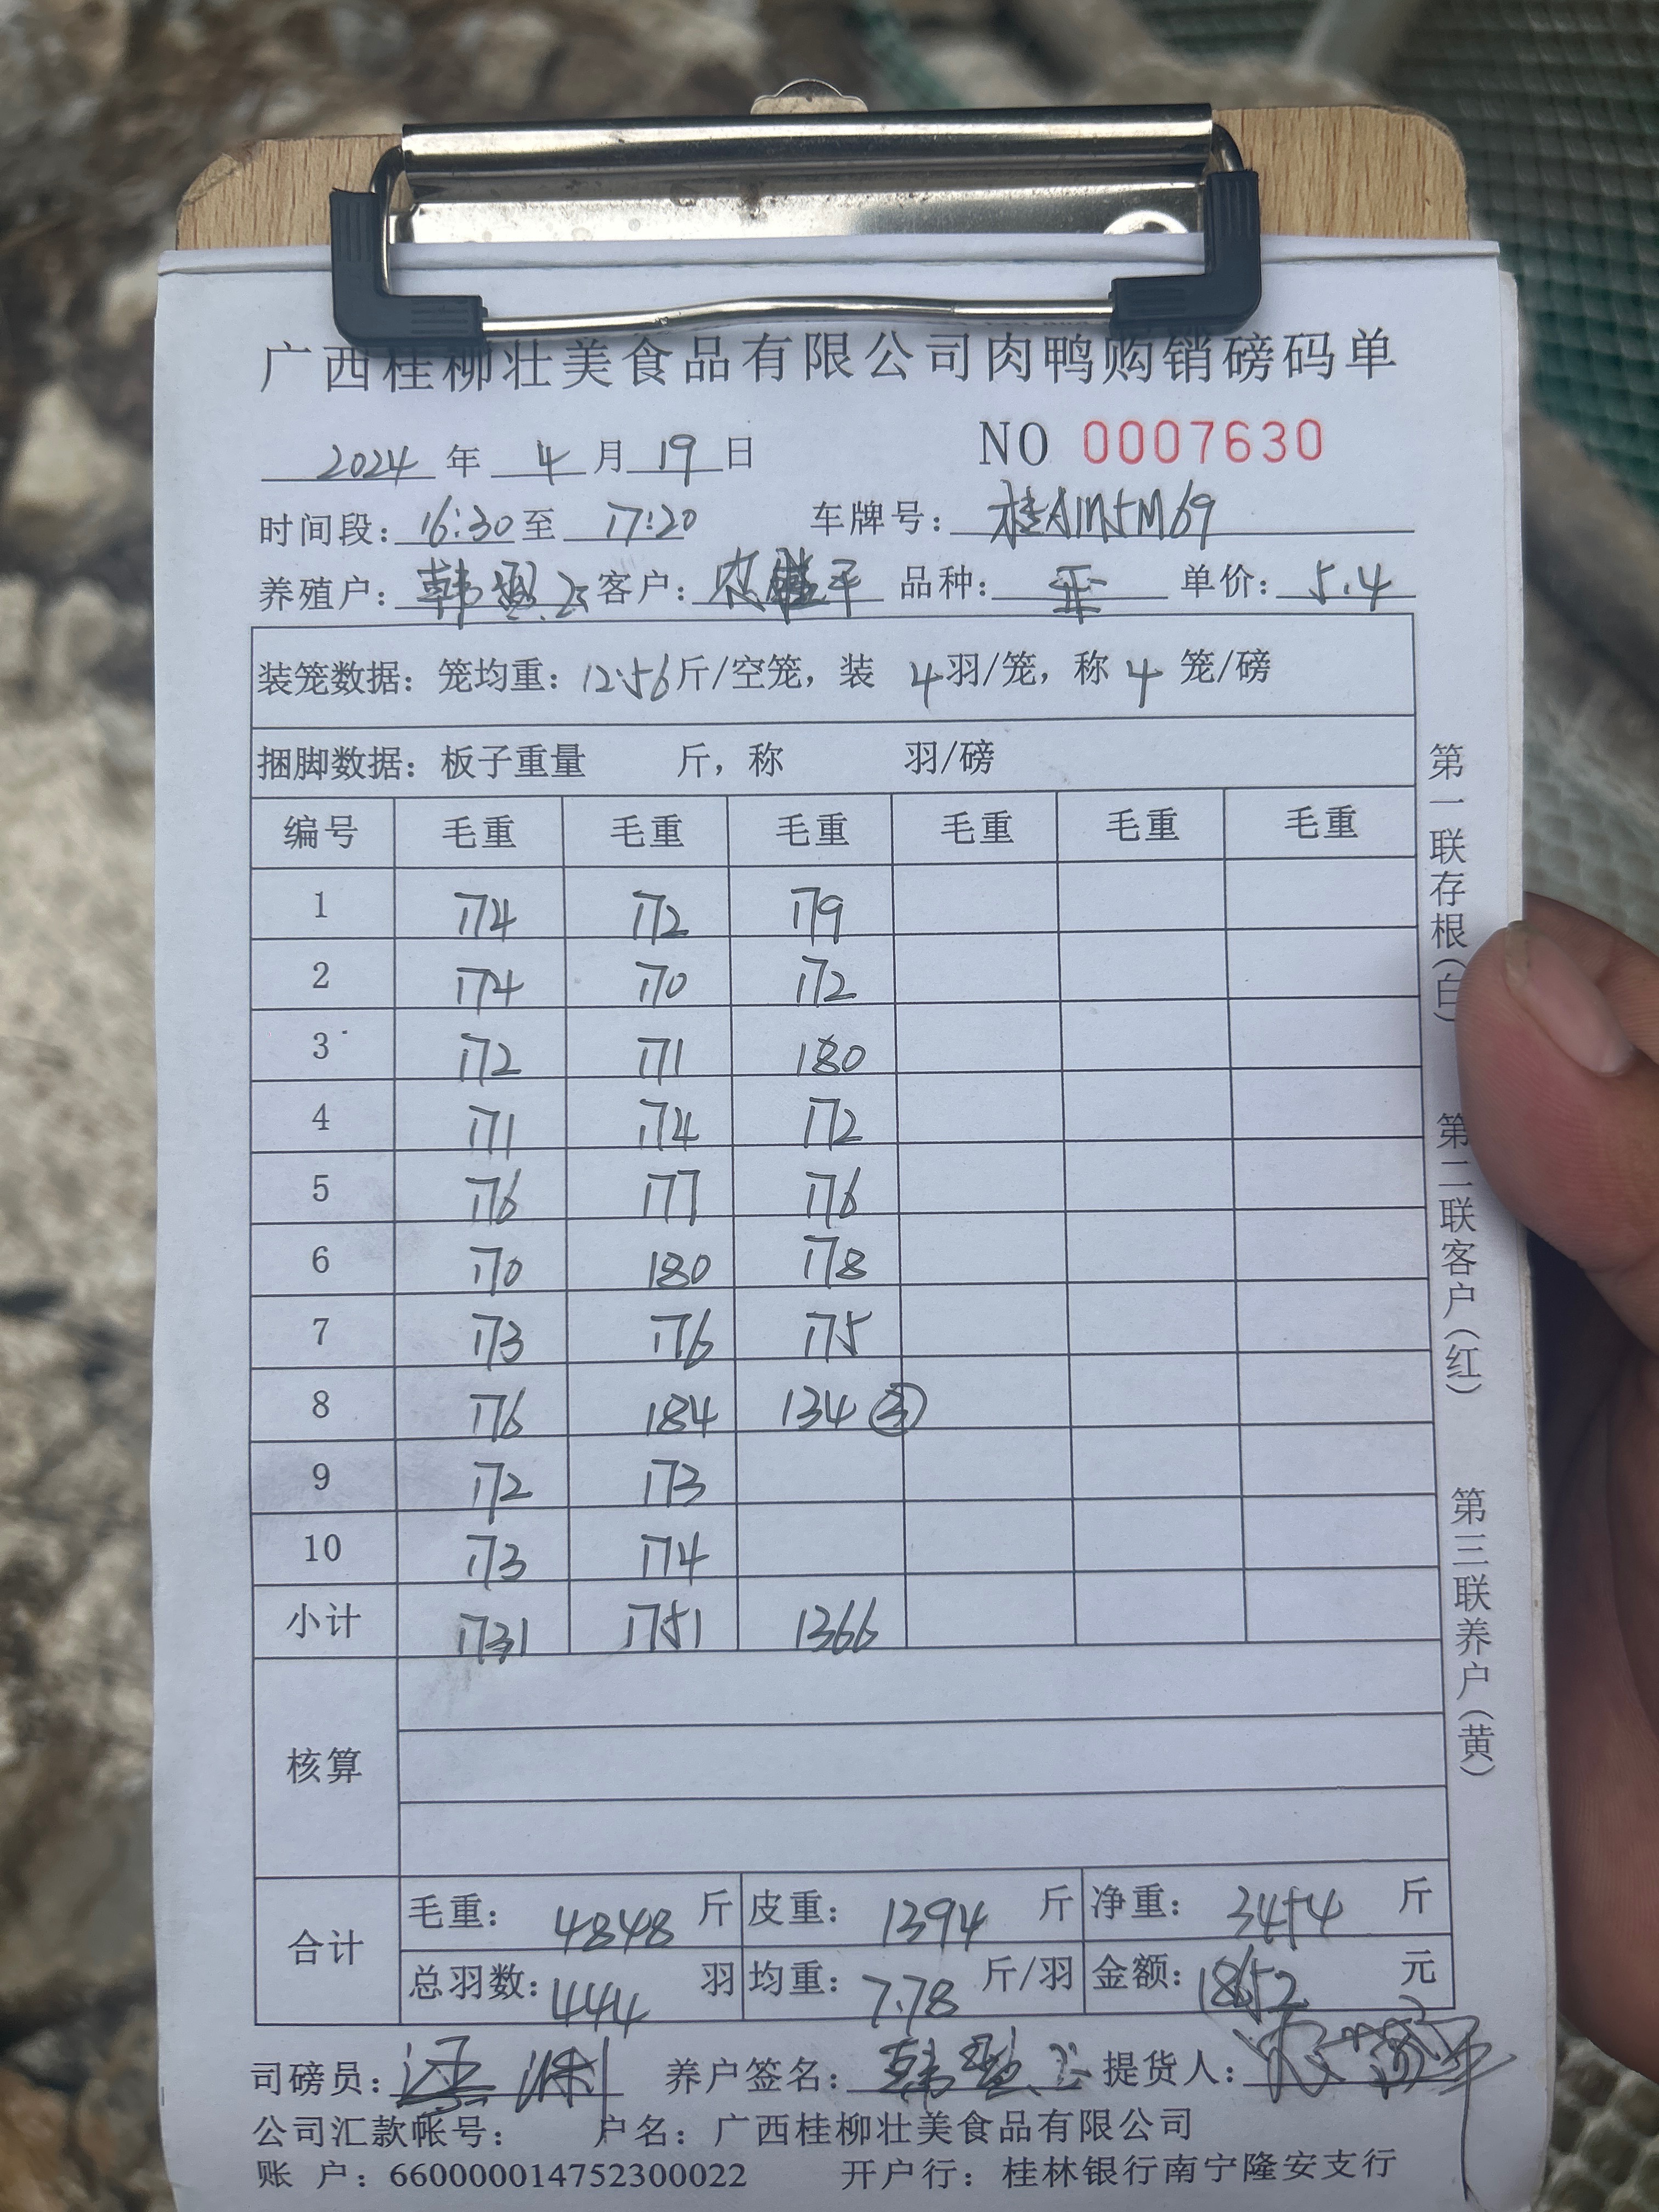 广西桂柳壮美食品有限公司肉鸭购销磅码单
2024 年 4 月 19 日 NO 0007630
时间段: 16:30 至 17:20 车牌号: 桂AM5M69
养殖户: 韩 客户: 农 平 品种: 单价: 5.4
装笼数据: 笼均重: 12.56 斤/空笼, 装 4 羽/笼, 称 4 笼/磅
捆脚数据: 板子重量 斤, 称 羽/磅
编号 毛重 毛重 毛重 毛重 毛重 毛重
1 174 172 179
2 174 170 172
3 172 171 180
4 171 174 172
5 176 177 176
6 170 180 178
7 173 176 175
8 176 184 134 ③
9 172 173
10 173 174
小计 1731 1751 1366
核算
合计 毛重: 4848 斤 皮重: 1394 斤 净重: 3454 斤
总羽数: 444 羽 均重: 7.78 斤/羽 金额: 18652 元
司磅员: 养户签名: 韩 提货人: 农 平
公司汇款帐号: 户名: 广西桂柳壮美食品有限公司
账 户: 660000014752300022 开户行: 桂林银行南宁隆安支行
第一联存根(白) 第二联客户(红) 第三联养户(黄)